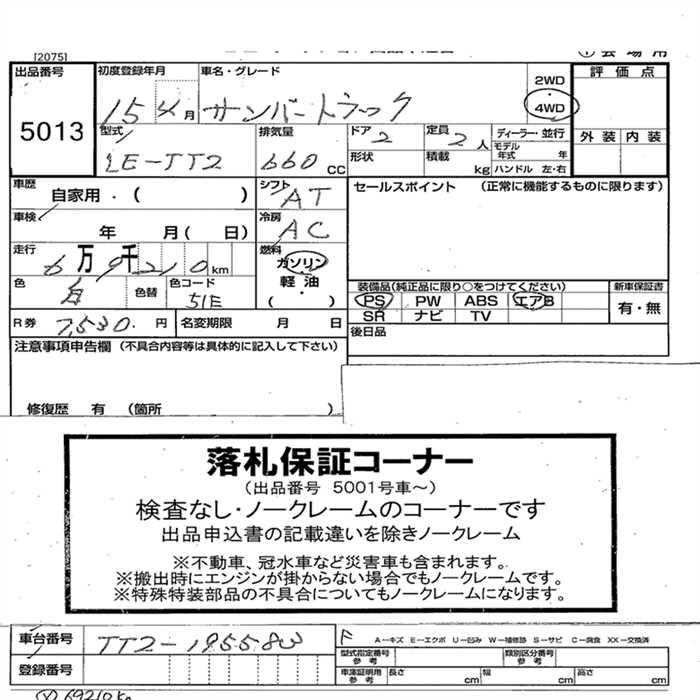 [2075]
出品番号 初度登録年月 車名・グレード 2WD 評価点
15 4月 サンバートラック 4WD
5013
型式 排気量 ドア 定員 ディーラー・並行 外装 内装
LE-TT2 660 CC 2 2人 モデル年式 年
形状 積載 kg ハンドル 左・右
車歴 自家用・( ) シフト AT セールスポイント (正常に機能するものに限ります)
車検 年 月(日) 冷房 AC
走行 6万9千210km 燃料 ガソリン
軽油
( )
色 白 色替 色コード 51E
装備品(純正品に限り○をつけてください) 新車保証書
PS PW ABS エアB 有・無
SR ナビ TV
R券 7,530.円 名変期限 月 日 後日品
注意事項申告欄 (不具合内容等は具体的に記入して下さい)
修復歴 有 (箇所 )
落札保証コーナー
(出品番号 5001号車~)
検査なし・ノークレームのコーナーです
出品申込書の記載違いを除きノークレーム
※不動車、冠水車など災害車も含まれます。
※搬出時にエンジンが掛からない場合でもノークレームです。
※特殊特装部品の不具合についてもノークレームになります。
車台番号 TT2-195583 F A-キズ E-エクボ U-凹み W-補修跡 S-サビ C-腐食 XX-交換済
型式指定番号 参考 類別区分番号 参考
登録番号 車庫証明用 参考 長さ cm 幅 cm 高さ cm
69210km